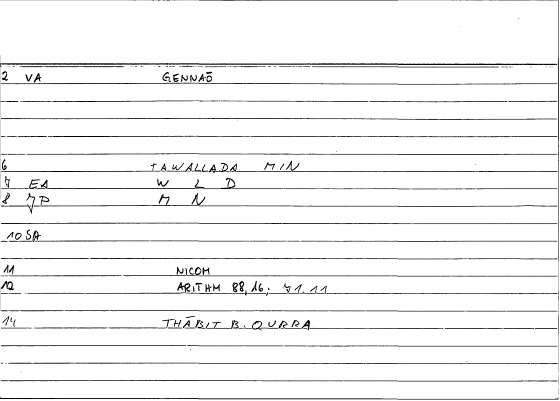 2 VA GENNAŌ
6 TAWALLADA MIN
7 EA W L D
8 7P M N
10 SA
11 NICOM
12 ARITHM 88,16; 71.11
14 THĀBIT B. QURRA